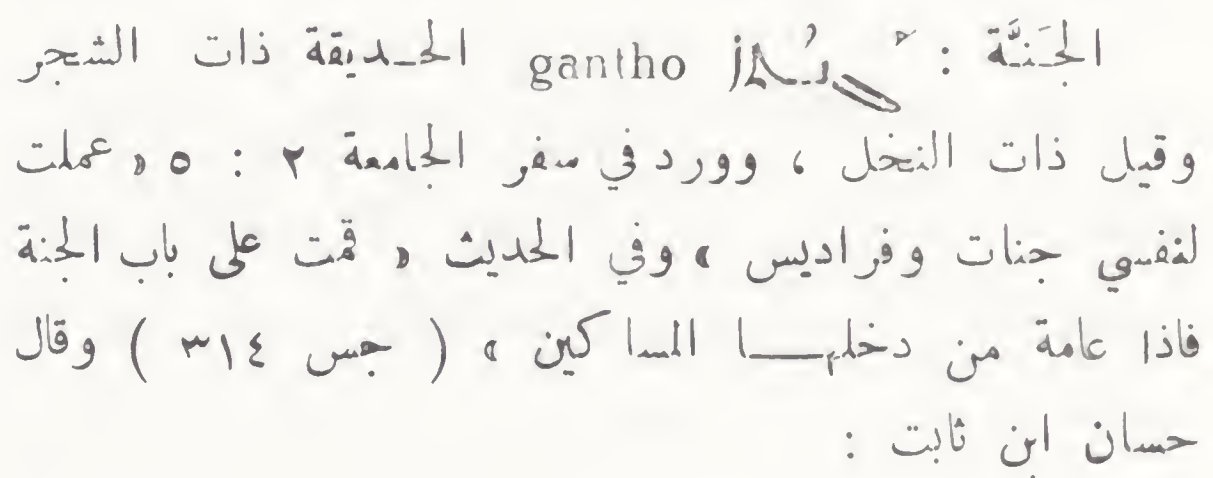 الجَنَّة : ܓܢܬܐ gantho الحديقة ذات الشجر
وقيل ذات النخل ، وورد في سفر الجامعة ٢ : ٥ « عملت
لنفسي جنات وفراديس » وفي الحديث « قمت على باب الجنة
فاذا عامة من دخلها المساكين » ( جس ٣١٤ ) وقال
حسان ابن ثابت :